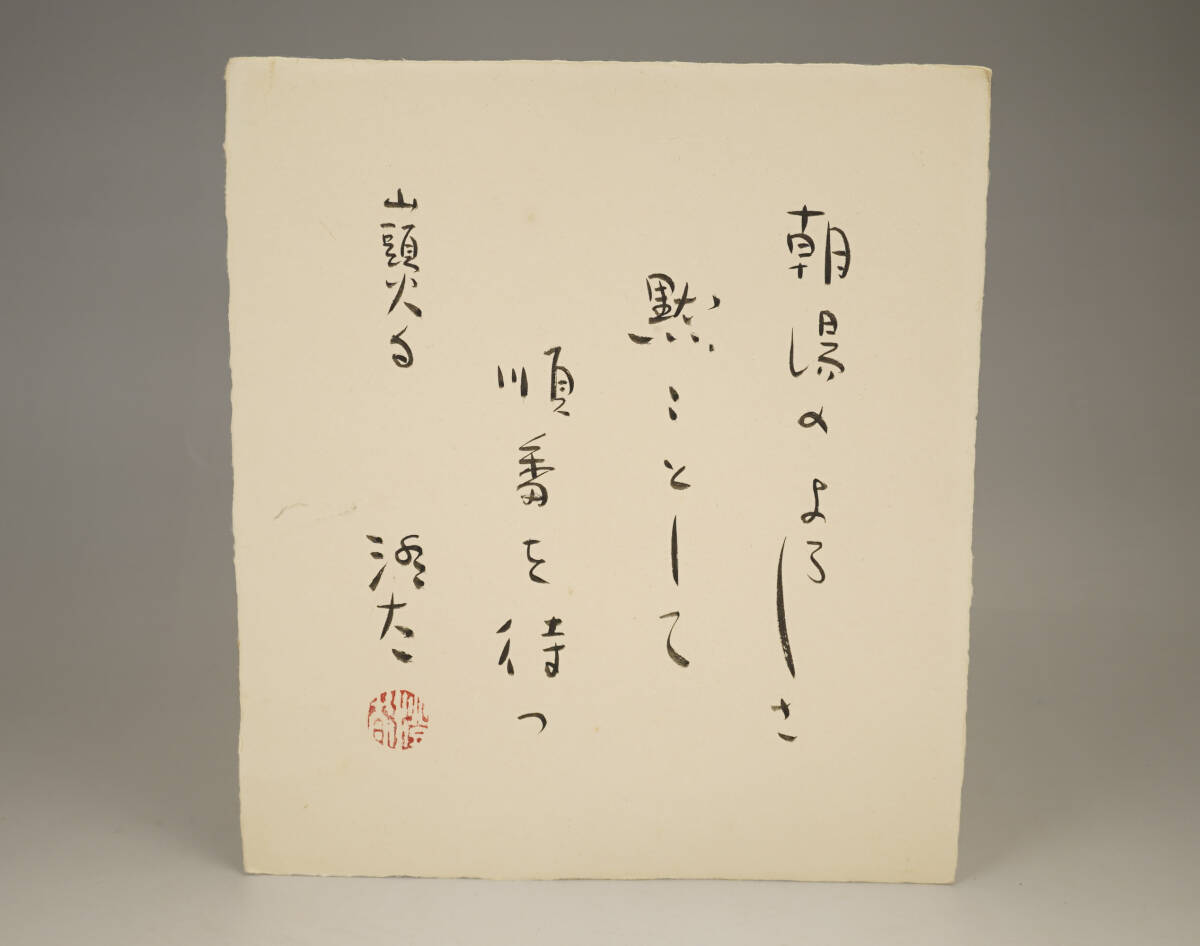 朝湯のよろしさ
黙々として
順番を待つ
山頭火句
澄太